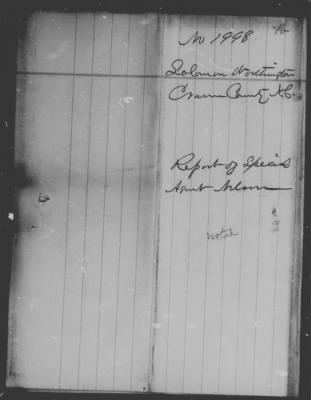 No 1998
Solomon Worthington
Craven County, N.C.
Report of Special
Agent Nelson